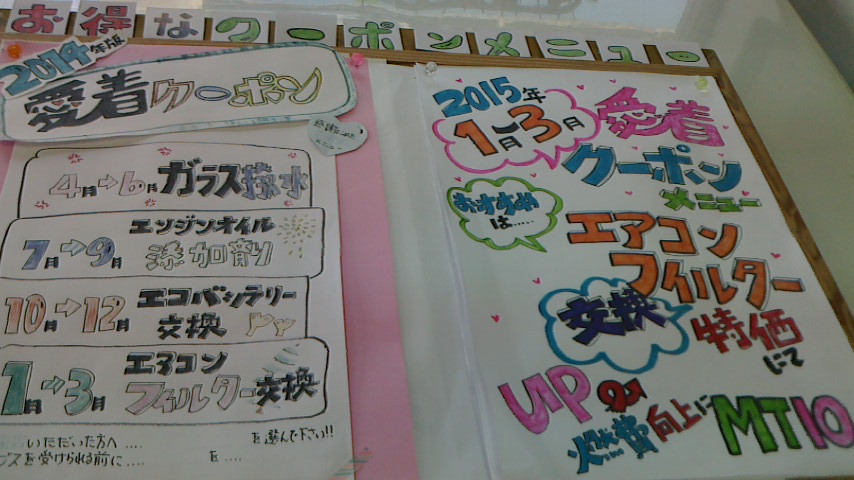 お得なクーポンメニュー
2014年版
愛着クーポン
4月→6月 ガラス撥水
7月→9月 エンジンオイル
添加剤
10月→12月 エコバッテリー
交換
1月→3月 エアコン
フィルター交換
いただいた方へ....
を選んで下さい!!
を受けられる前に....
を....
2015年
1月〜3月
愛着
クーポン
メニュー
おすすめ
は……
エアコン
フィルター
交換
特価
にて
UP
燃費向上に
MT10